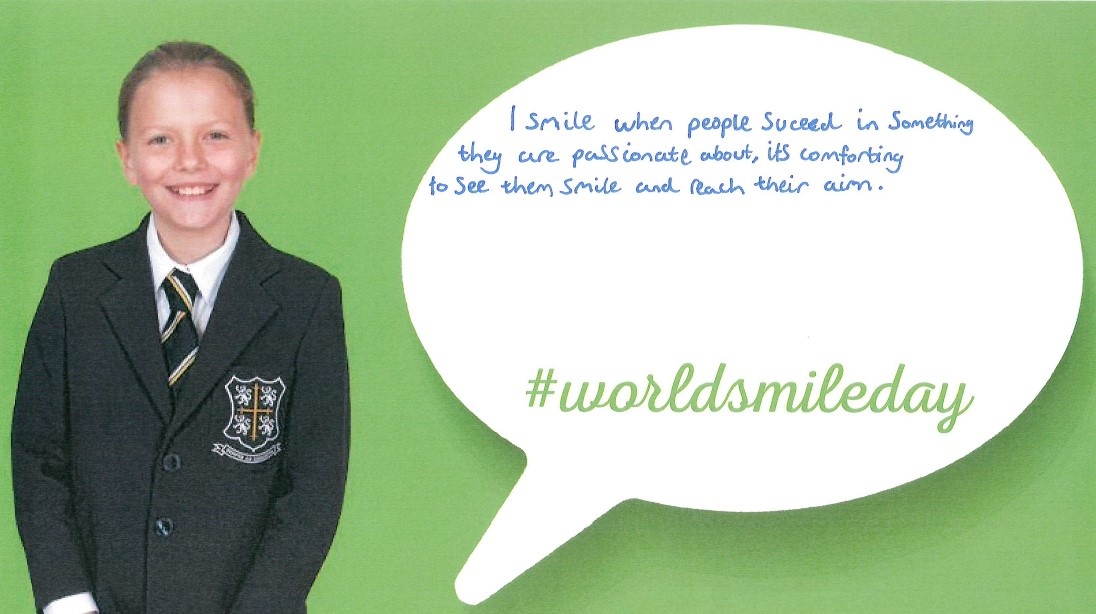 I smile when people suceed in something
they are passionate about, its comforting
to see them smile and reach their aim.
#worldsmileday